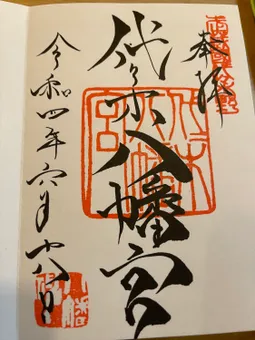 奉拝
代々木八幡宮
令和四年六月十八日